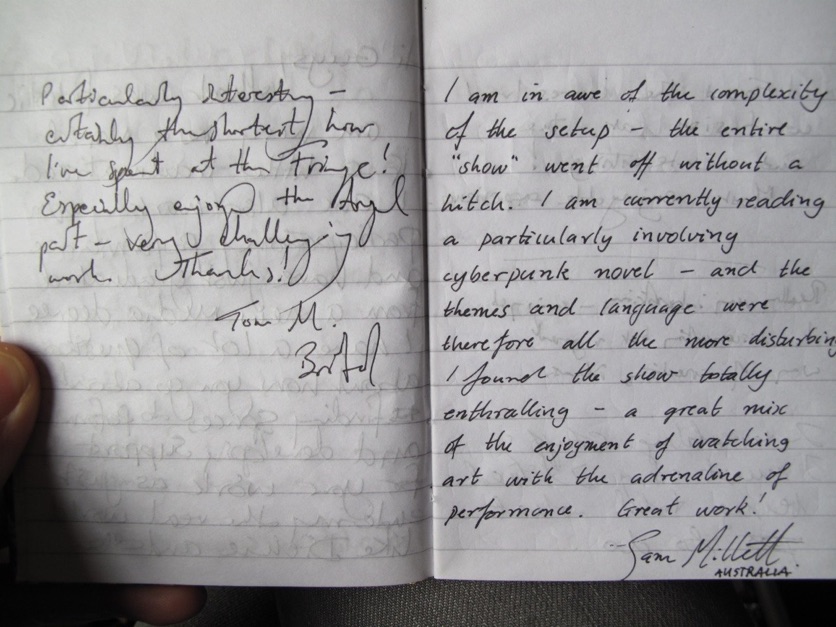 Particularly interesting -
certainly the shortest hour
I've spent at the Fringe!
Especially enjoyed the Angel
part - very challenging
work. Thanks!
Tom M.
Bristol
I am in awe of the complexity
of the setup - the entire
"show" went off without a
hitch. I am currently reading
a particularly involving
cyberpunk novel - and the
themes and language were
therefore all the more disturbing
I found the show totally
enthralling - a great mix
of the enjoyment of watching
art with the adrenaline of
performance. Great work!
Sam Millett
AUSTRALIA.